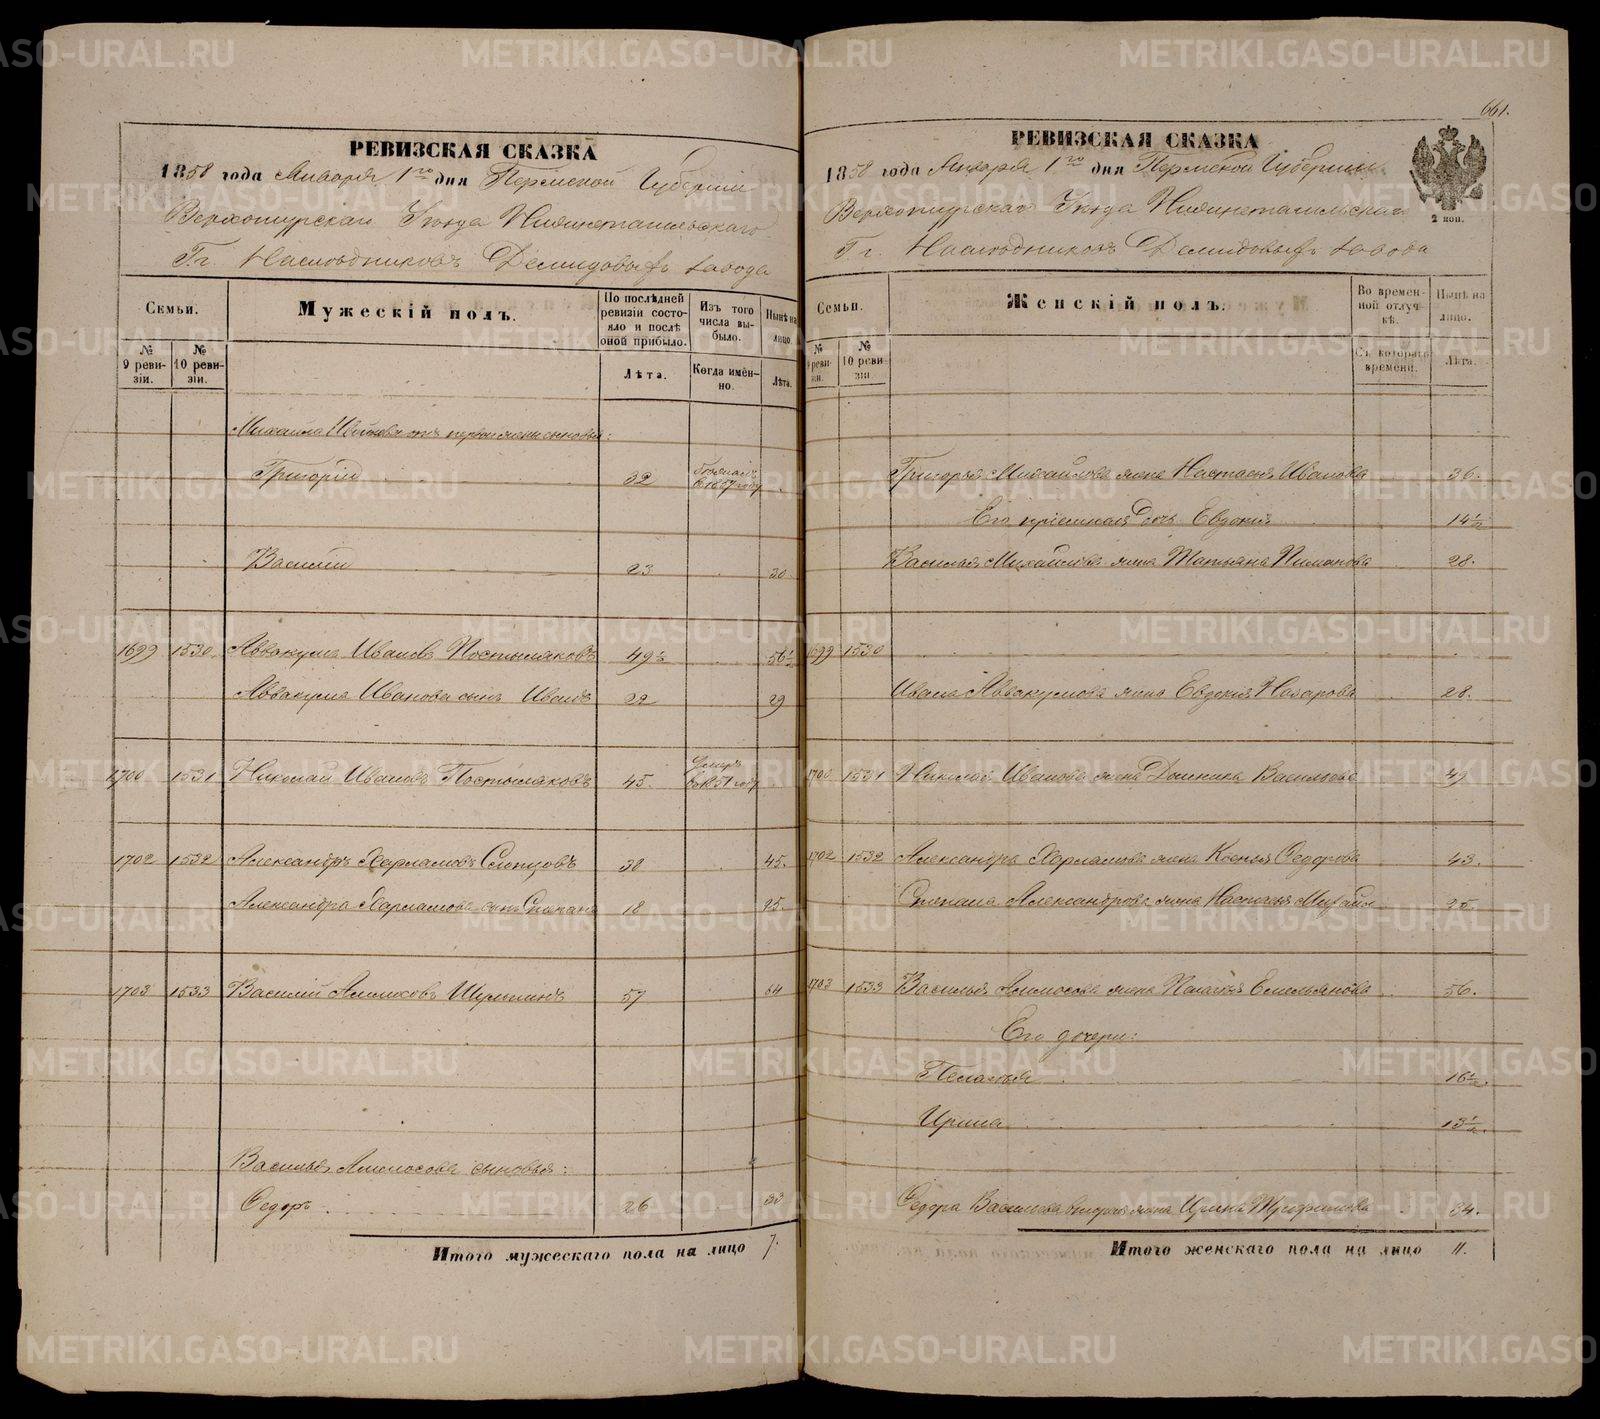 661.
РЕВИЗСКАЯ СКАЗКА
1858 года Января 1го дня Пермской Губернии
Верхотурскаго Уезда Нижнетагильскаго
Гг. Наследниковъ Демидовыхъ завода
Семьи.
Мужескій полъ.
По послѣдней ревизіи состояло и послѣ оной прибыло.
Изъ того числа выбыло.
Нынѣ на лицо.
№ 9 ревизіи.
№ 10 ревизіи.
Лѣта.
Когда именно.
Лѣта.
Михаила отъ первой жены сыновья:
Григорій 32 въ 1857 году
Василій 23 30
1699 1530 Аввакумъ Ивановъ Постыляковъ 49½ 56½
Аввакума Иванова сынъ Иванъ 22 29
1700 1531 Николай Ивановъ Постыляковъ 45. Умеръ въ 1851 году
1702 1532 Александръ Харламовъ Слепцовъ 38 45.
Александра Харламова сынъ Степанъ 18 25.
1703 1533 Василій 57 64
Василья сыновья:
Федоръ 26 33
Итого мужескаго пола на лицо 7.
РЕВИЗСКАЯ СКАЗКА
1858 года Января 1го дня Пермской Губерніи
2 коп.
Верхотурскаго Уезда Нижнетагильскаго
Гг. Наследниковъ Демидовыхъ завода
Семьи.
Женскій полъ.
Во временной отлучкѣ.
Нынѣ на лицо.
№ 9 ревизіи.
№ 10 ревизіи.
Съ котораго времени.
Лѣта.
Григорья Михайлова жена Настасья Иванова 36.
Его пріемная дочь Евдокия 14½
Василья Михайлова жена Татьяна 28.
1699 1530
Ивана Аввакумова жена Евдокия Назарова 28.
1700 1531 Николая Иванова жена Васильева 49
1702 1532 Александра Харламова жена Ксенья Федорова 43.
Степана Александрова жена Настасья 25.
1703 1533 Василья жена Емельянова 56.
Его дочери:
Пелагея 16½.
Ирина 13½.
Федора Васильева вторая жена Ирина Трофимова 34.
Итого женскаго пола на лицо 11.
METRIKI.GASO-URAL.RU